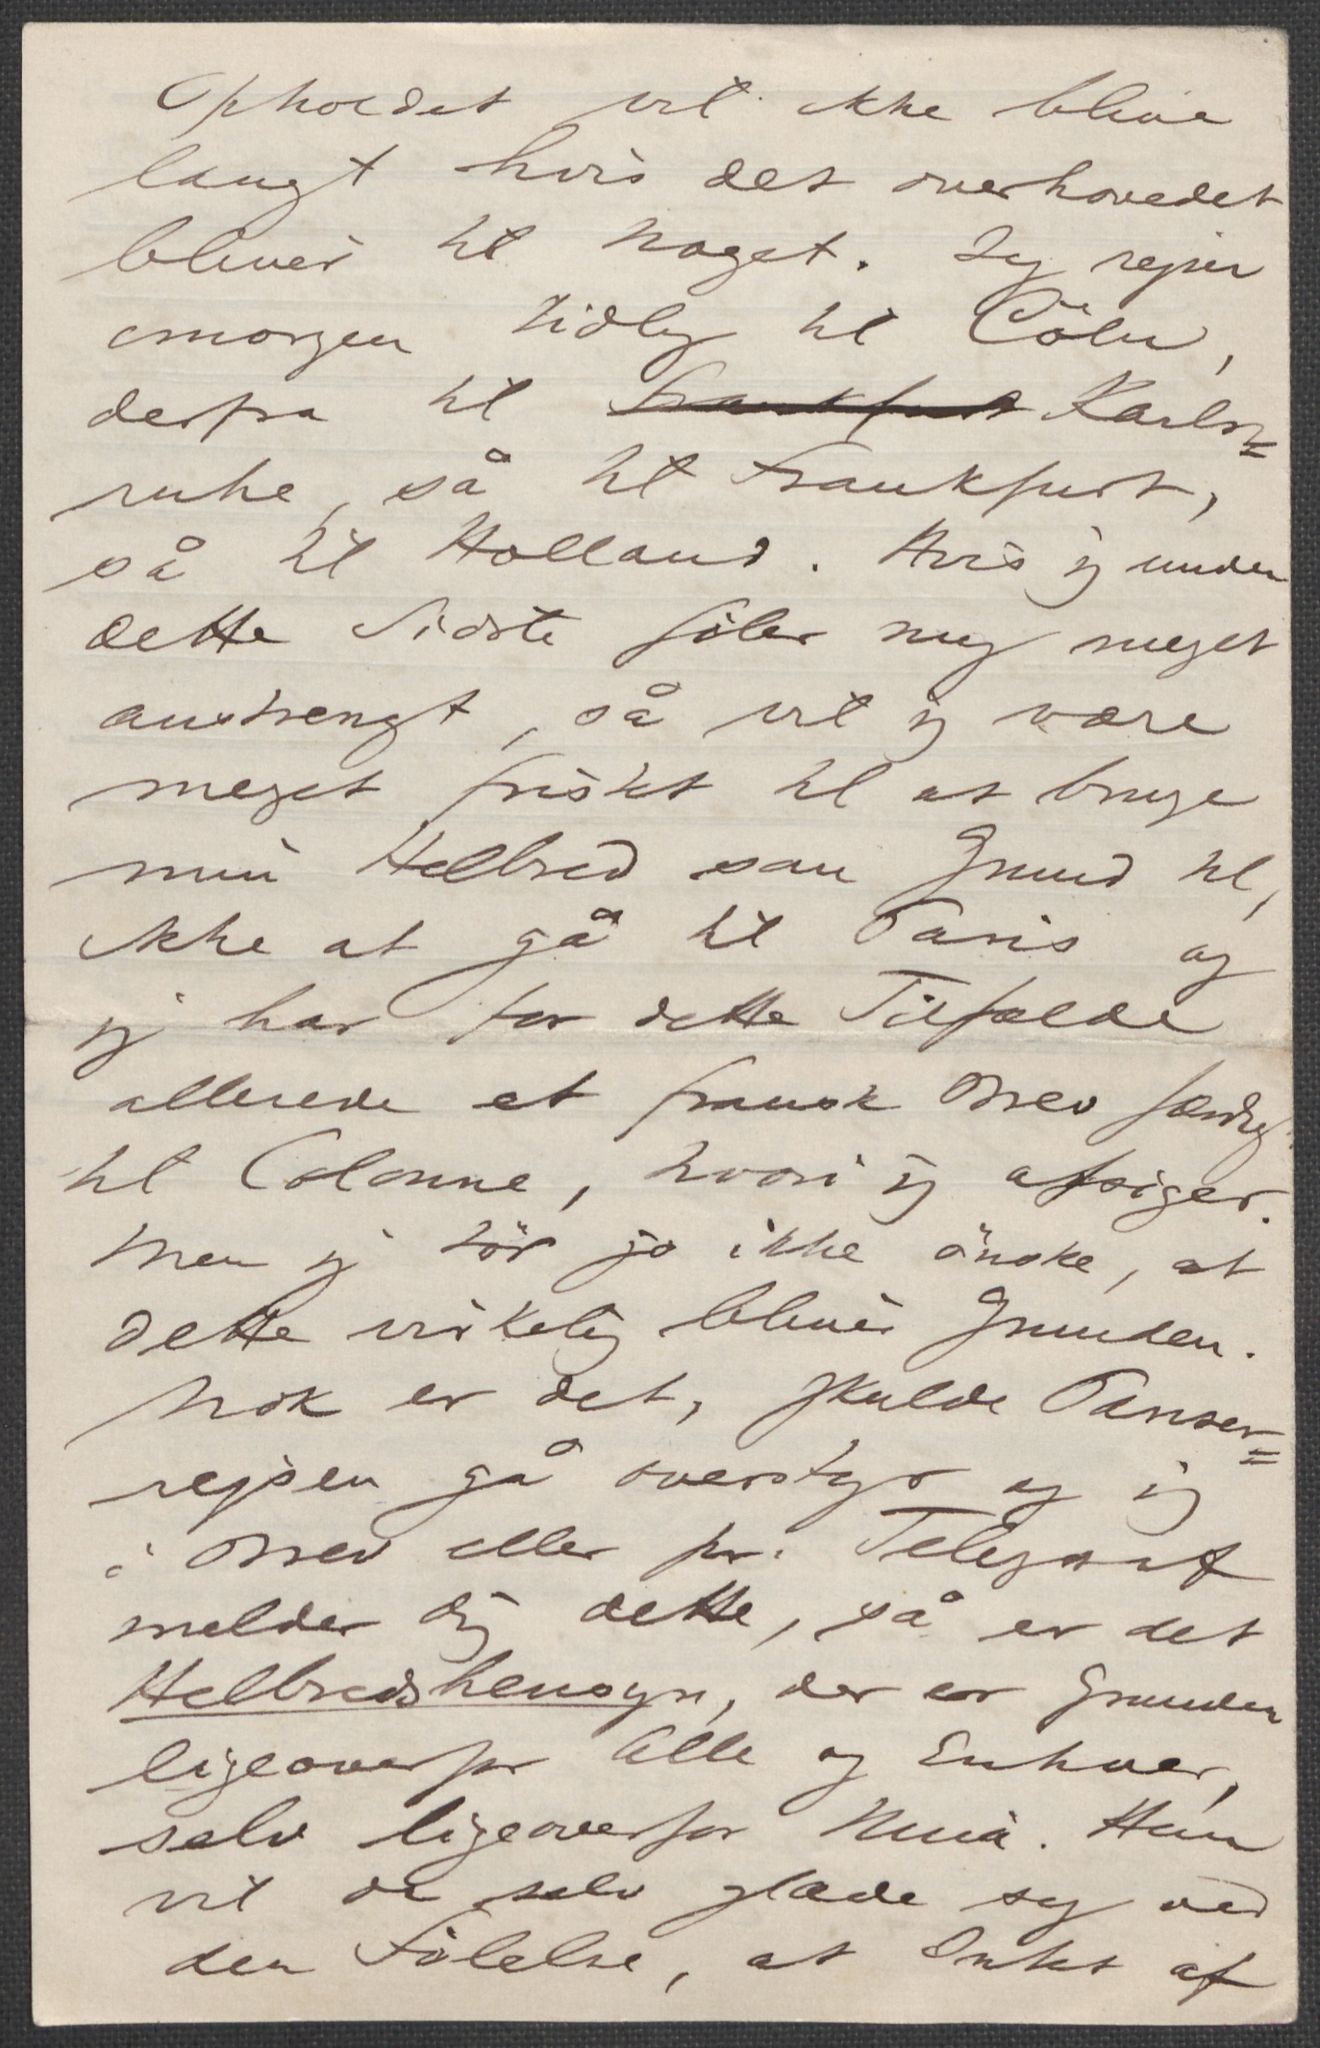 Opholdet vil ikke blive
langt hvis det overhovedet
bliver til noget. Jeg rejser
imorgen tidlig til Cöln,
derfra til Frankfurt Karls=
ruhe, så til Frankfurt,
så til Holland. Hvis jeg under
dette Sidste föler mig meget
anstrengt, så vil jeg være
meget fristet til at bruge
min Helbred som Grund til,
ikke at gå til Paris og
jeg har for dette Tilfælde
allerede et fransk Brev færdig
til Colonne, hvori jeg afsiger.
Men jeg tör jo ikke önske, at
dette virkelig bliver Grunden.
Nok er det, skulde Pariser=
rejsen gå overstyr og jeg
i Brev eller pr. Telegraf
melder dig dette, så er det
Helbredshensyn, der er Grunden
ligeoverfor Alle og Enhver,
selv ligeoverfor Nina. Hun
vil da selv glæde sig ved
den Fölelse, at Intet af